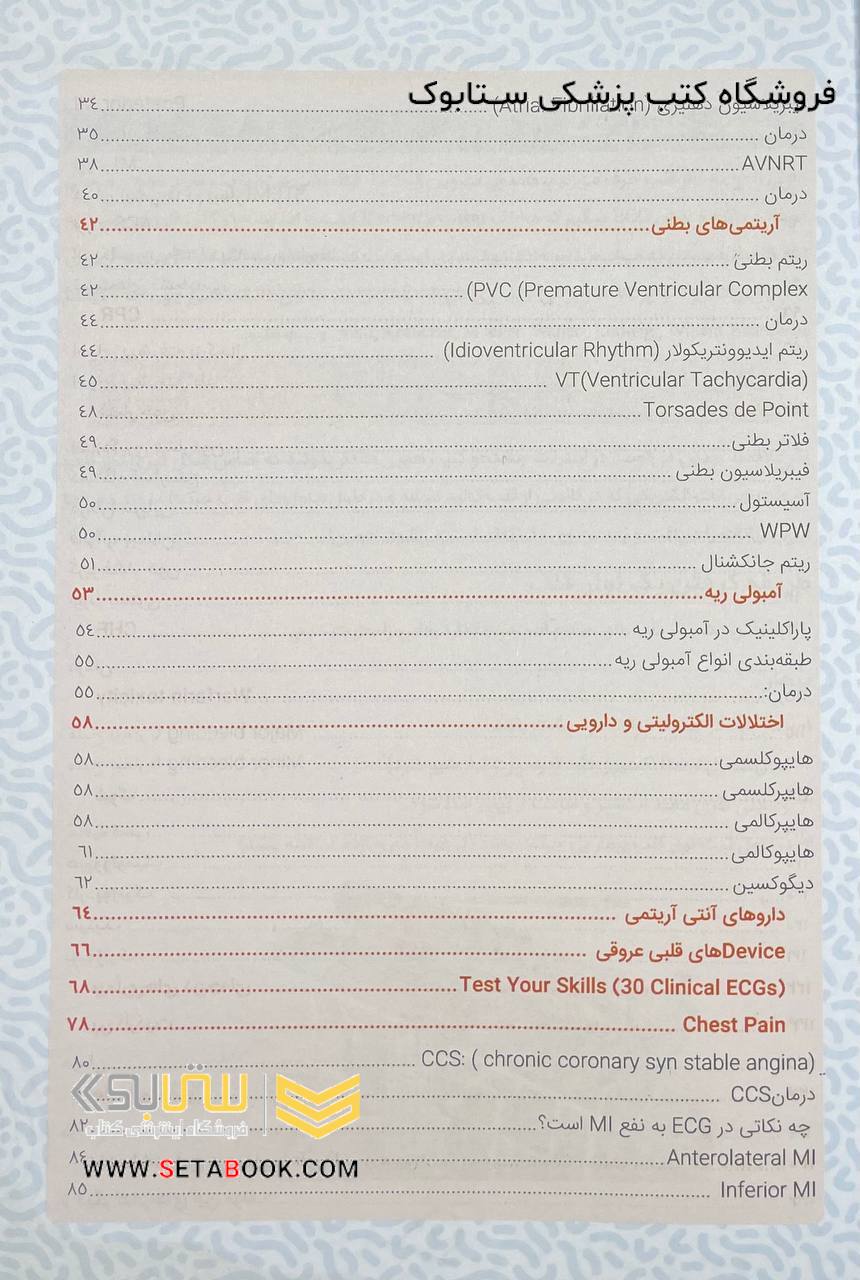 فروشگاه کتب پزشکی ستابوک
فیبریلاسیون دهلیزی (Atrial Fibrillation) ........ ۳۴
درمان ........ ۳۵
AVNRT ........ ۳۸
درمان ........ ۴۰
آریتمی‌های بطنی ........ ۴۲
ریتم بطنی ........ ۴۲
PVC (Premature Ventricular Complex) ........ ۴۲
درمان ........ ۴۴
ریتم ایدیوونتریکولار (Idioventricular Rhythm) ........ ۴۴
VT(Ventricular Tachycardia) ........ ۴۵
Torsades de Point ........ ۴۸
فلاتر بطنی ........ ۴۹
فیبریلاسیون بطنی ........ ۴۹
آسیستول ........ ۵۰
WPW ........ ۵۰
ریتم جانکشنال ........ ۵۱
آمبولی ریه ........ ۵۳
پاراکلینیک در آمبولی ریه ........ ۵۴
طبقه‌بندی انواع آمبولی ریه ........ ۵۵
درمان: ........ ۵۵
اختلالات الکترولیتی و دارویی ........ ۵۸
هایپوکلسمی ........ ۵۸
هایپرکلسمی ........ ۵۸
هایپرکالمی ........ ۵۸
هایپوکالمی ........ ۶۱
دیگوکسین ........ ۶۲
داروهای آنتی آریتمی ........ ۶۴
Deviceهای قلبی عروقی ........ ۶۶
Test Your Skills (30 Clinical ECGs) ........ ۶۸
Chest Pain ........ ۷۸
CCS: ( chronic coronary syn stable angina) ........ ۸۰
درمانCCS ........
چه نکاتی در ECG به نفع MI است؟ ........ ۸۲
Anterolateral MI ........ ۸۴
Inferior MI ........ ۸۵
ستابوک
فروشگاه اینترنتی کتاب
WWW.SETABOOK.COM